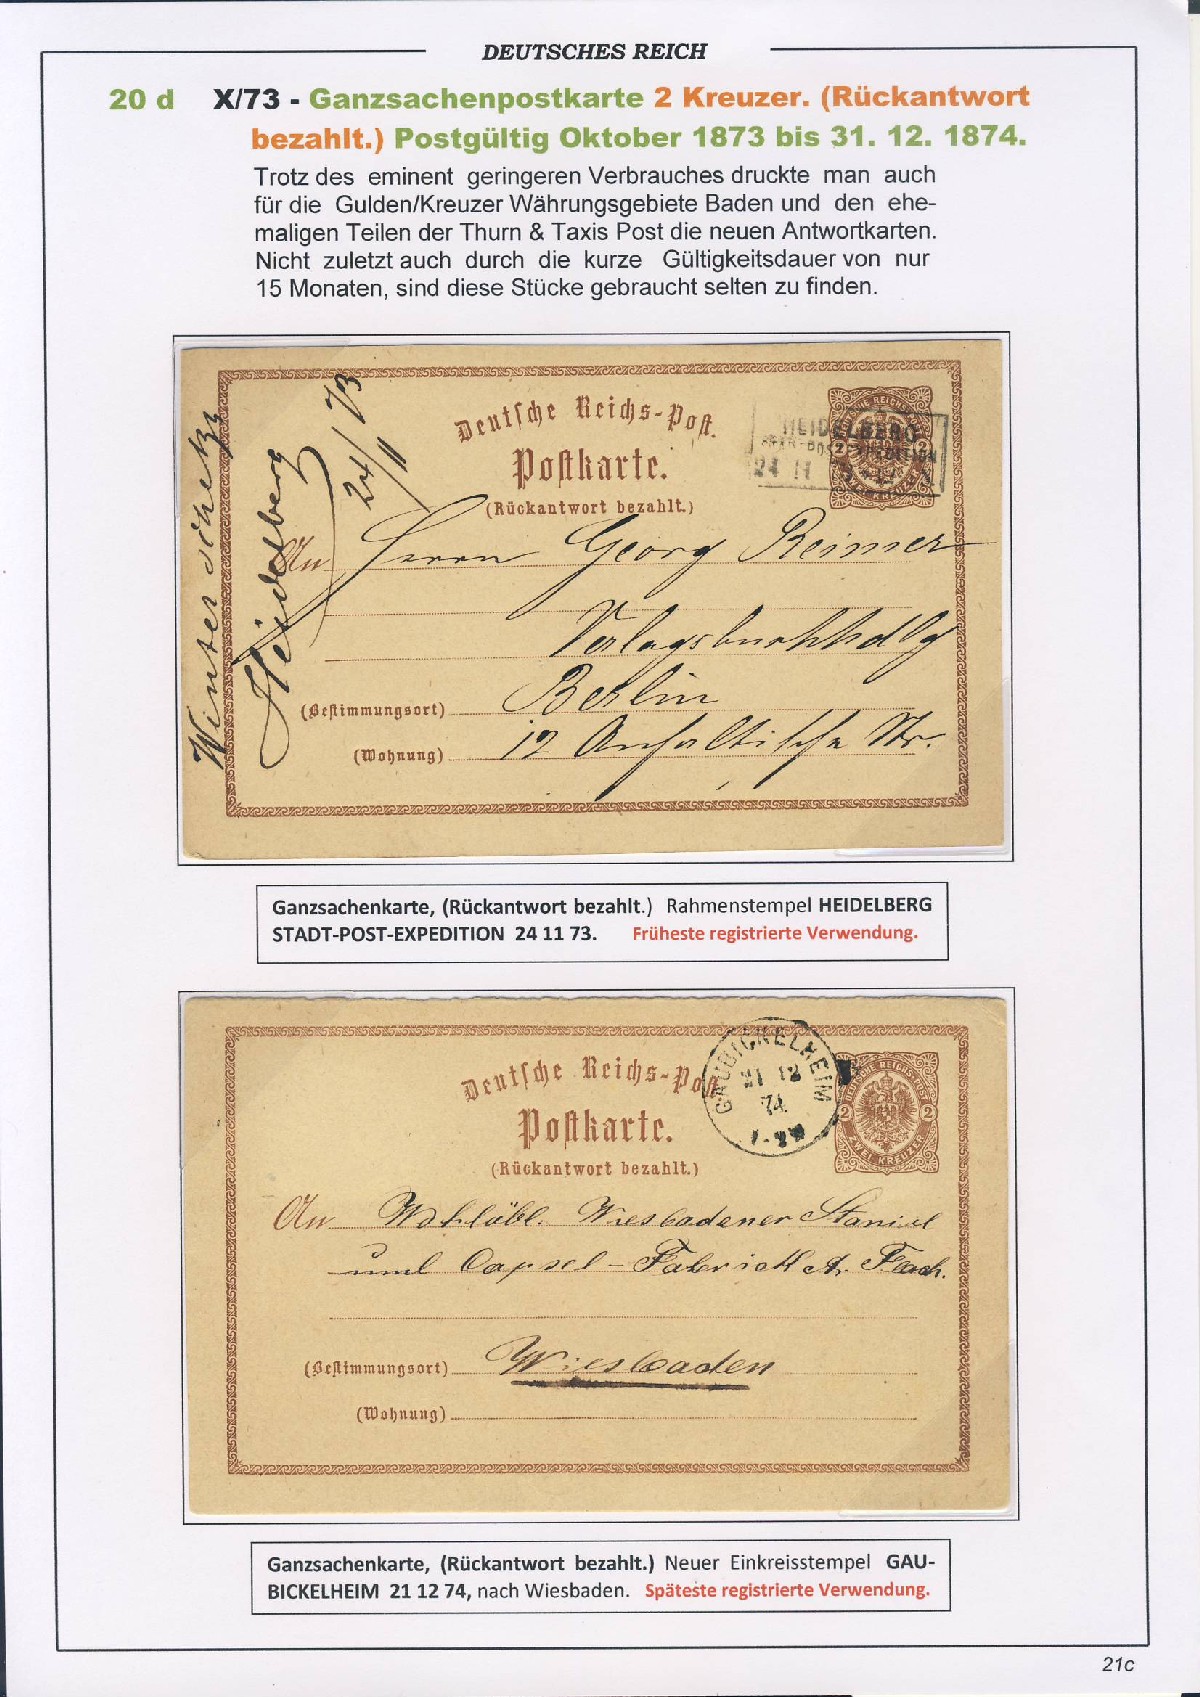 DEUTSCHES REICH
20 d X/73 - Ganzsachenpostkarte 2 Kreuzer. (Rückantwort
bezahlt.) Postgültig Oktober 1873 bis 31. 12. 1874.
Trotz des eminent geringeren Verbrauches druckte man auch
für die Gulden/Kreuzer Währungsgebiete Baden und den ehe-
maligen Teilen der Thurn & Taxis Post die neuen Antwortkarten.
Nicht zuletzt auch durch die kurze Gültigkeitsdauer von nur
15 Monaten, sind diese Stücke gebraucht selten zu finden.
Heidelberg
24/11 73
Deutsche Reichs-Post.
Postkarte.
(Rückantwort bezahlt.)
HEIDELBERG
24 11
An Herrn Georg Reimer
Verlagsbuchhdlg
(Bestimmungsort) Berlin
(Wohnung) 12 Anhaltische Str.
Ganzsachenkarte, (Rückantwort bezahlt.) Rahmenstempel HEIDELBERG
STADT-POST-EXPEDITION 24 11 73. Früheste registrierte Verwendung.
Deutsche Reichs-Post
Postkarte.
(Rückantwort bezahlt.)
GAUBICKELHEIM
21 12
74
DEUTSCHE REICHSPOST
2 2
ZWEI KREUZER
An Wohllöbl. Wiesbadener Staniol
und Capsel-Fabrick A. Flach.
(Bestimmungsort) Wiesbaden
(Wohnung)
Ganzsachenkarte, (Rückantwort bezahlt.) Neuer Einkreisstempel GAU-
BICKELHEIM 21 12 74, nach Wiesbaden. Späteste registrierte Verwendung.
21c